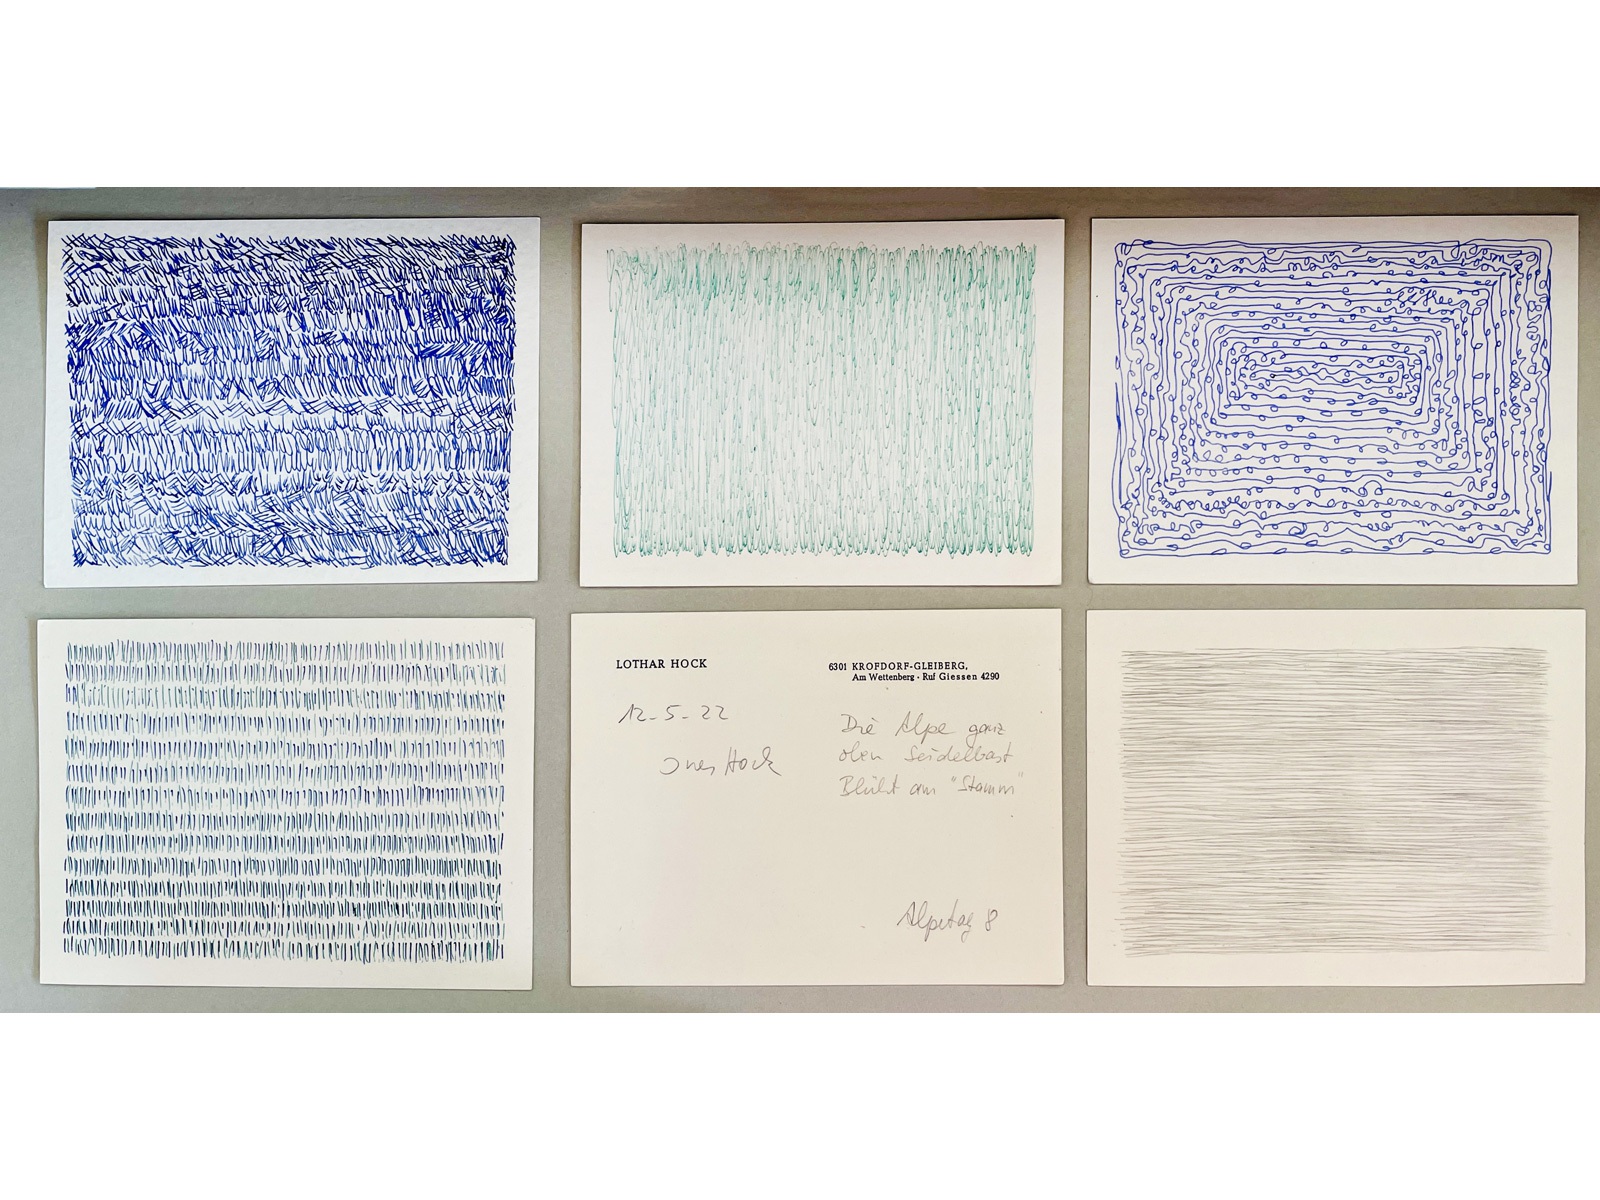 LOTHAR HOCK
6301 KROFDORF-GLEIBERG,
Am Wettenberg · Ruf Giessen 4290
12-5-22
Ines Hock
Die Alpe ganz
oben Seidelbast
Blüht am "Stamm"
Alpetag 8